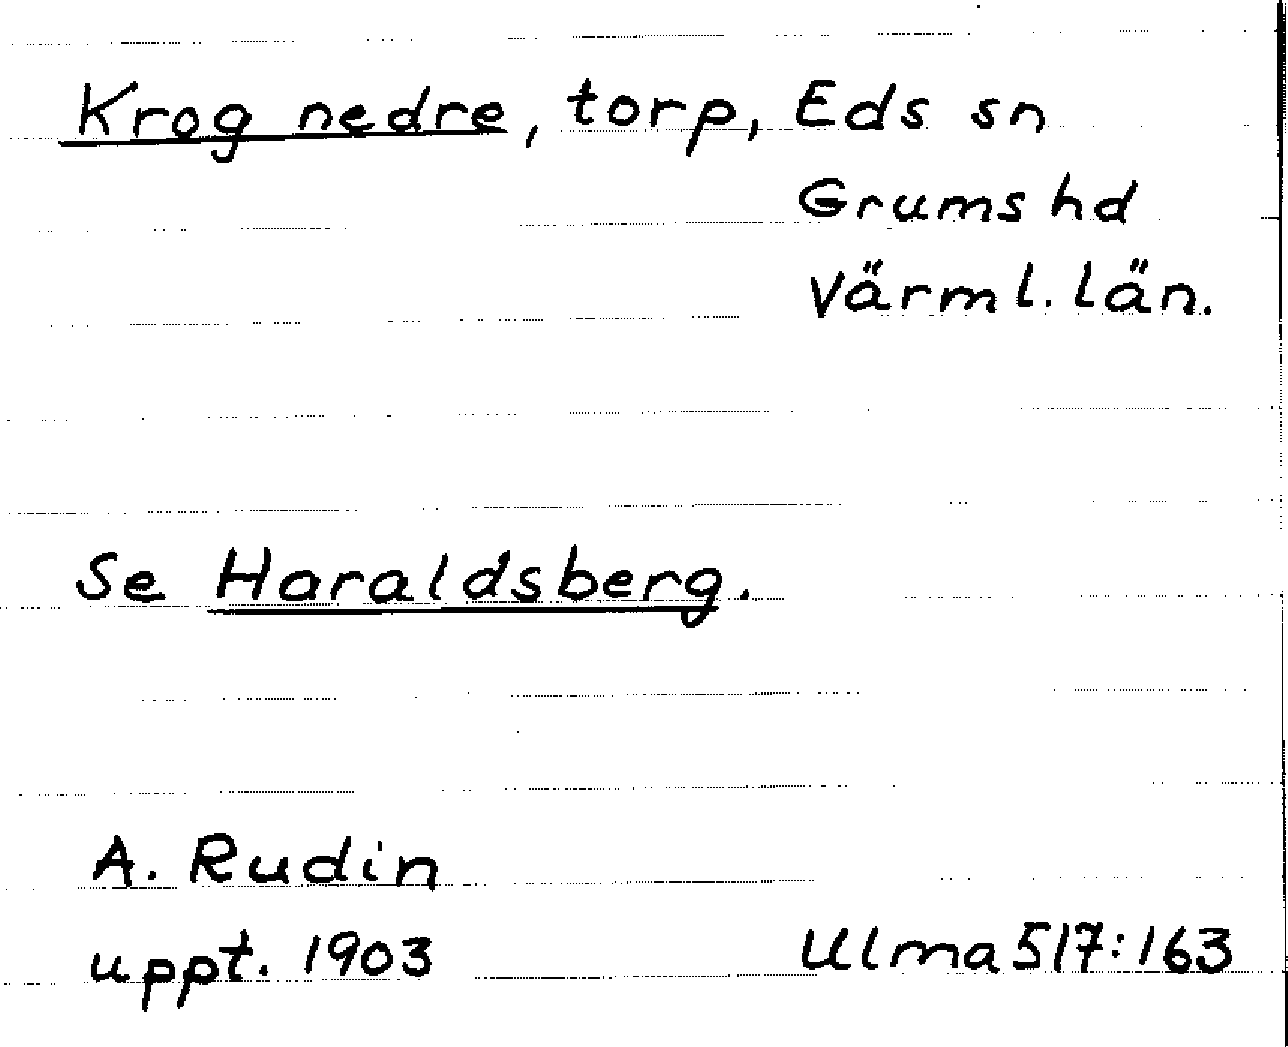 Krog nedre, torp, Eds sn
Grums hd
Värml. län.
Se Haraldsberg.
A. Rudin
uppt. 1903 Ulma 517:163